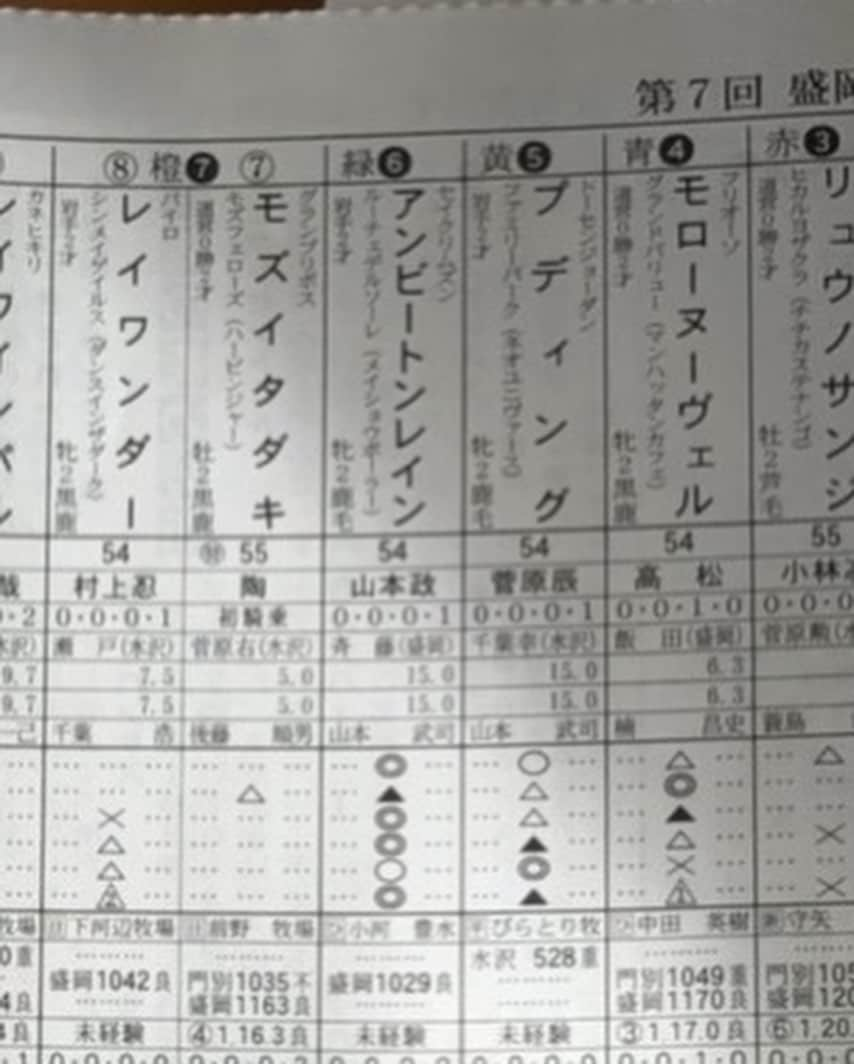 第7回 盛岡
赤❸
リュウノサンジ
ヒカルヨザクラ
牡2芦毛
55
青❹
フリオーソ
モローヌーヴェル
グランドバリュー (マンハッタンカフェ)
牝2黒鹿
54
高 松
0・0・1・0
飯 田(盛岡)
6.3
6.3
楠 昌史
△
◎
▲
△
×
中田 英樹
門別1049重
盛岡1170良
③1.17.0良
黄❺
トーセンジョーダン
プディング
ファミリーパーク (ネオユニヴァース)
岩手2才
牝2鹿毛
54
菅原辰
0・0・0・1
千葉幸(水沢)
15.0
15.0
山本 武司
○
△
△
▲
◎
▲
びらとり牧
水沢 528重
未経験
緑❻
アンビートンレイン
ルーチェデルソーレ (メイショウボーラー)
岩手2才
牝2鹿毛
54
山本政
0・0・0・1
斉 藤(盛岡)
15.0
15.0
山本 武司
◎
▲
◎
◎
○
◎
小河 豊水
盛岡1029良
未経験
橙❼
⑦
グランプリボス
モズイタダキ
モズフェローズ (ハービンジャー)
牡2黒鹿
55
陶
初騎乗
菅原右(水沢)
5.0
5.0
後藤 順男
△
前野 牧場
門別1035不
盛岡1163良
④1.16.3良
⑧
パイロ
レイワンダー
シンメイゲイルス (ダンスインザダーク)
岩手2才
牝2黒鹿
54
村上忍
0・0・0・1
瀬 戸(水沢)
7.5
7.5
千葉 浩
×
△
△
下河辺牧場
盛岡1042良
未経験
カネヒキリ
9.7
9.7